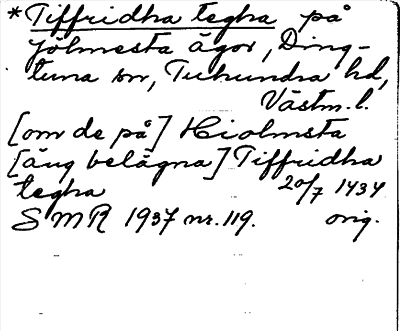 *Tiffridha tegha på
Jölmesta ägor, Ding-
tuna sn, Tuhundra hd,
Västm. l.
[om de på] Hiolmsta
[äng belägna] Tiffridha
tegha 20/7 1434
SMR 1937 nr. 119. orig.